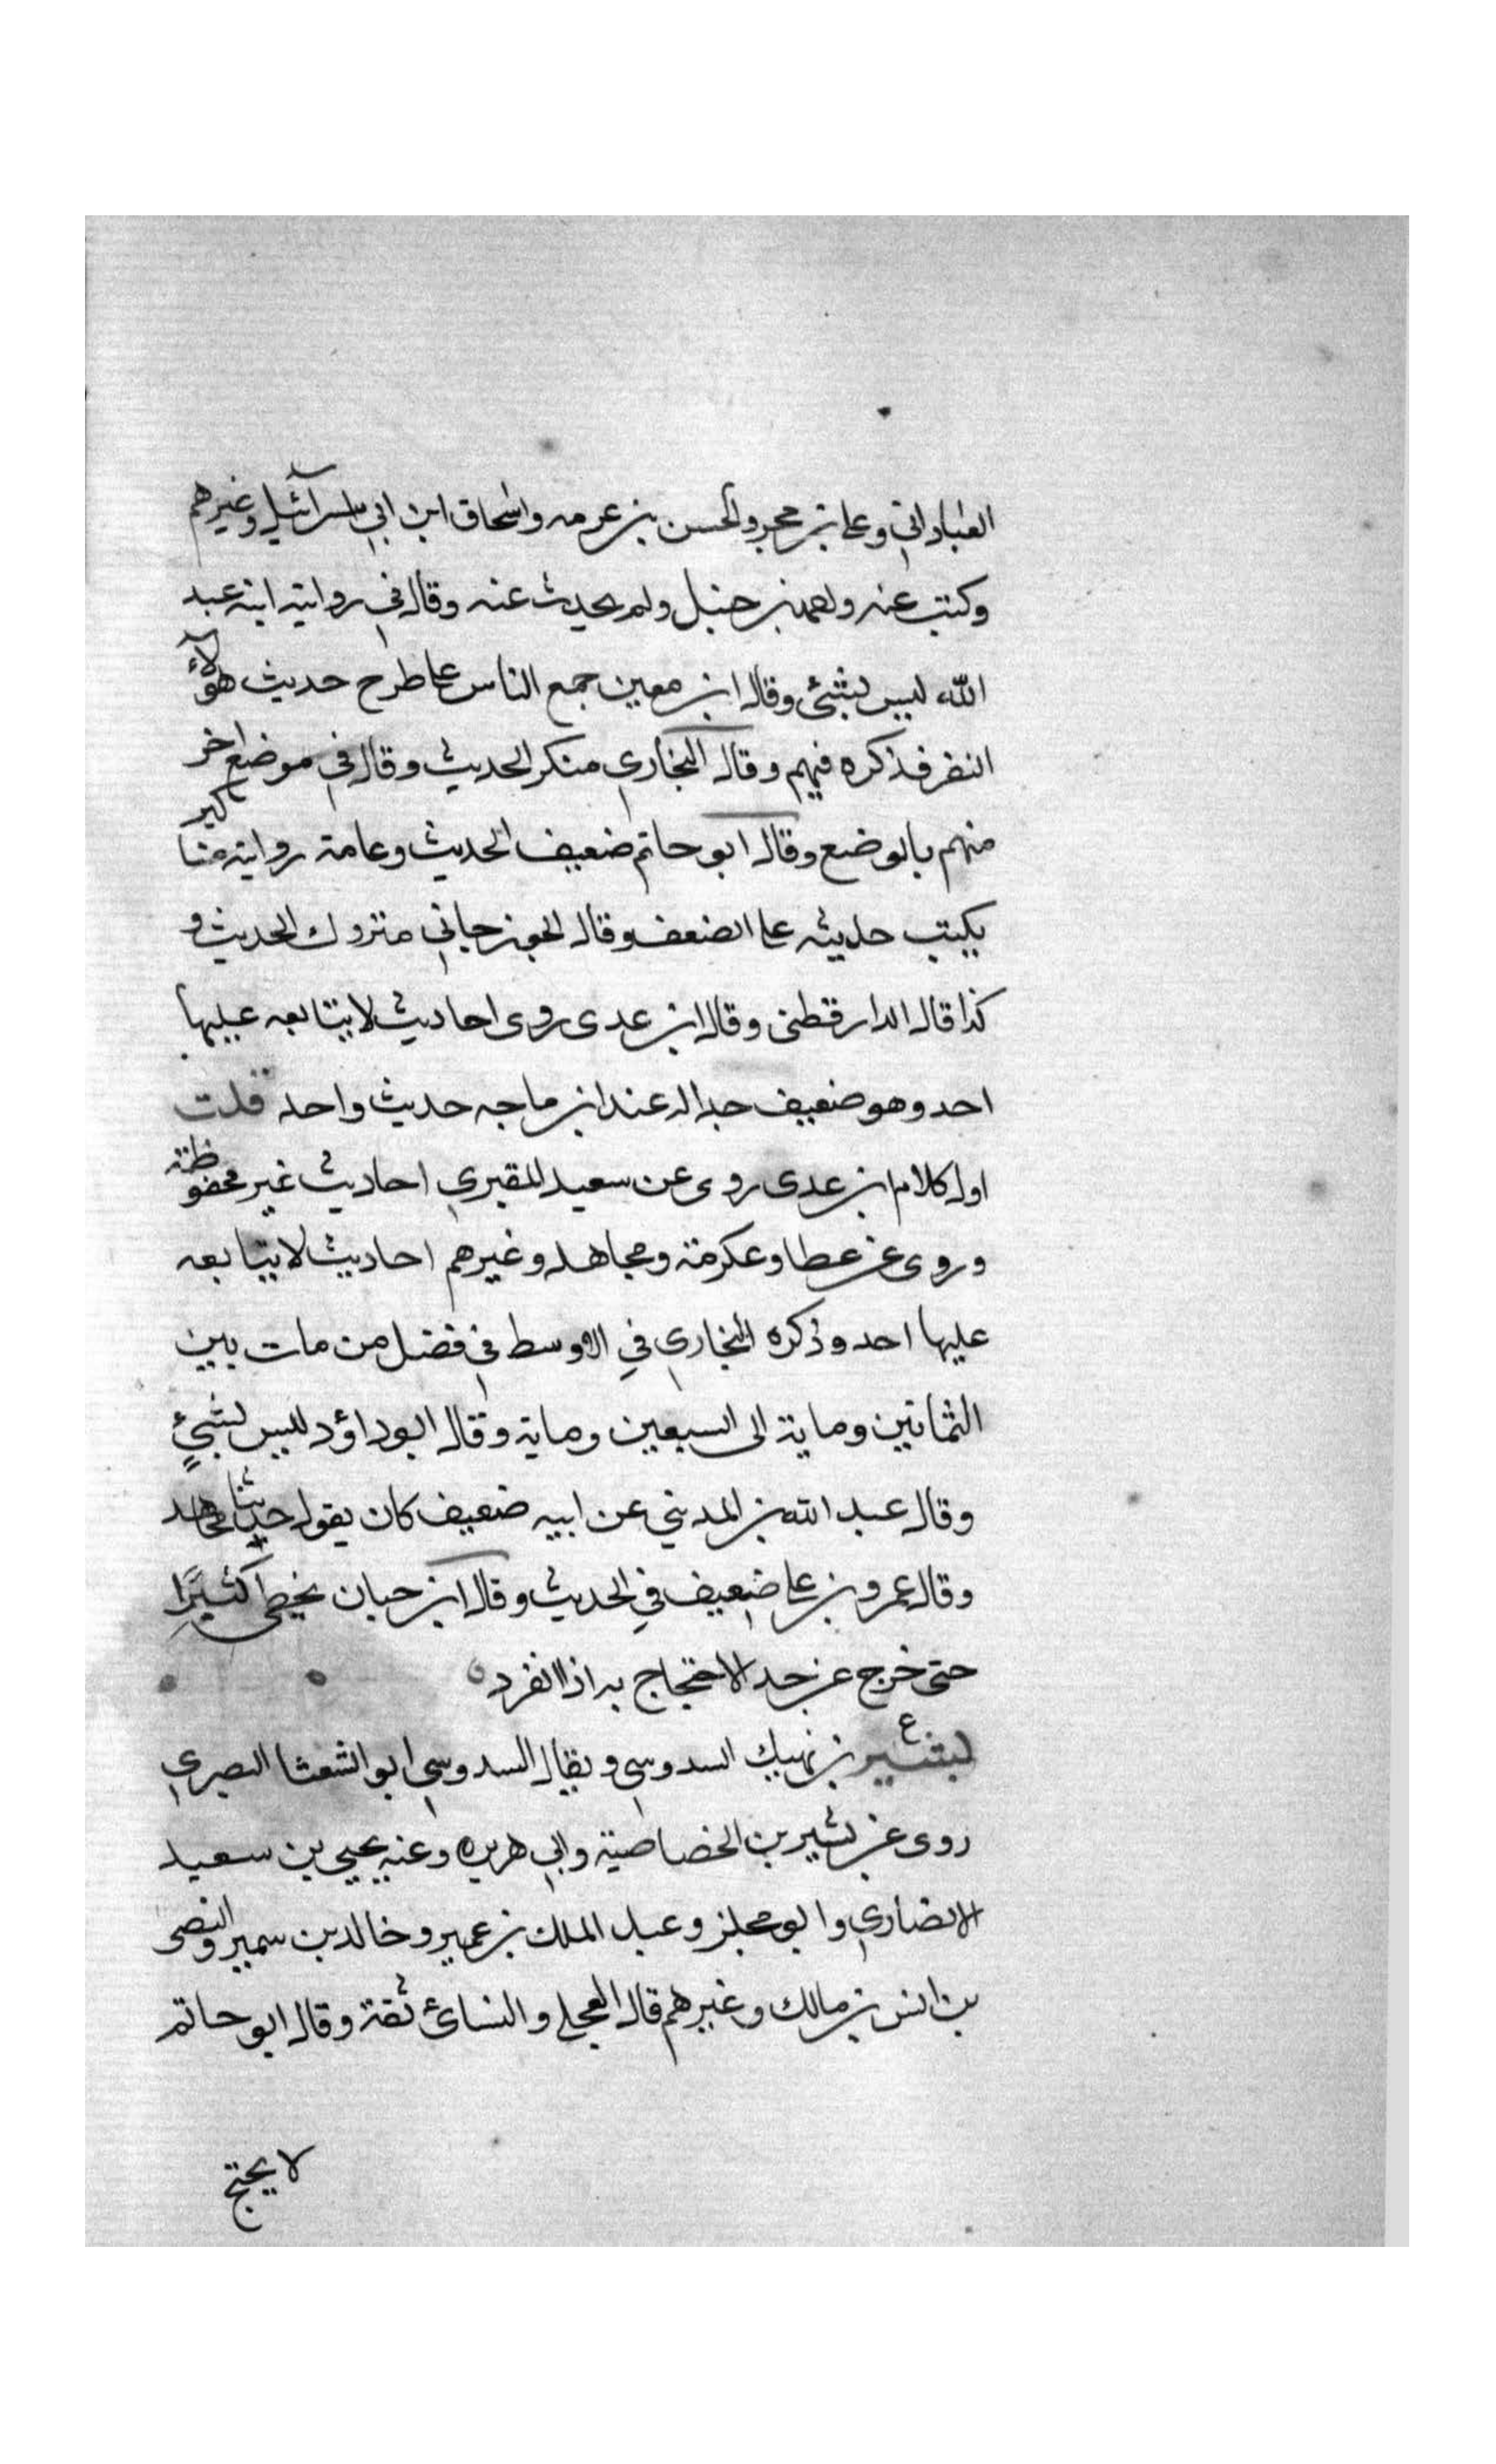 العباداني وعلي بن حجر والحسن بن عرفه واسحاق ابن ابي اسرآئيل وغيرهم
وكتب عنه احمد بن حنبل ولم يحدث عنه وقال في رواية ابنه عبد
الله ليس بشئ وقال ابن معين جمع الناس على طرح حديث هؤلآء
النفر فذكره فيهم وقال البخاري منكر الحديث وقال في موضع اخر
منهم بالوضع وقال ابو حاتم ضعيف الحديث وعامة رواية مناكير
يكتب حديثه على الضعف وقال الجوزجاني متروك الحديث و
كذا قال الدارقطني وقال ابن عدى روى احاديث لا يتابعه عليها
احد وهو ضعيف جدا له عند ابن ماجه حديث واحد قلت
اول كلام ابن عدى روى عن سعيد المقبري احاديث غير محفوظة
وروى عن عطا وعكرمة ومجاهد وغيرهم احاديث لا يتابعه
عليها احد وذكره البخاري في الاوسط في فضل من مات بين
الثمانين وماية الى السبعين وماية وقال ابو داؤد ليس بشيءٍ
وقال عبد الله بن المديني عن ابيه ضعيف كان يقول حديثنا مجاهد
وقال عمرو بن علي ضعيف في الحديث وقال ابن حبان يخطى كثيرًا
حتى خرج عن حد الاحتجاج به اذا انفرد
بشير بن نهيك السدوسي ويقال السدوسي ابو الشعثا البصري
روى عن بشير بن الخصاصية وابي هريره وعنه يحيى بن سعيد
الانصاري وابو مجلز وعبد الملك بن عمير وخالد بن سمير والنضر
بن انس بن مالك وغيرهم قال العجلي والنسائ ثقة وقال ابو حاتم
لا يحتج